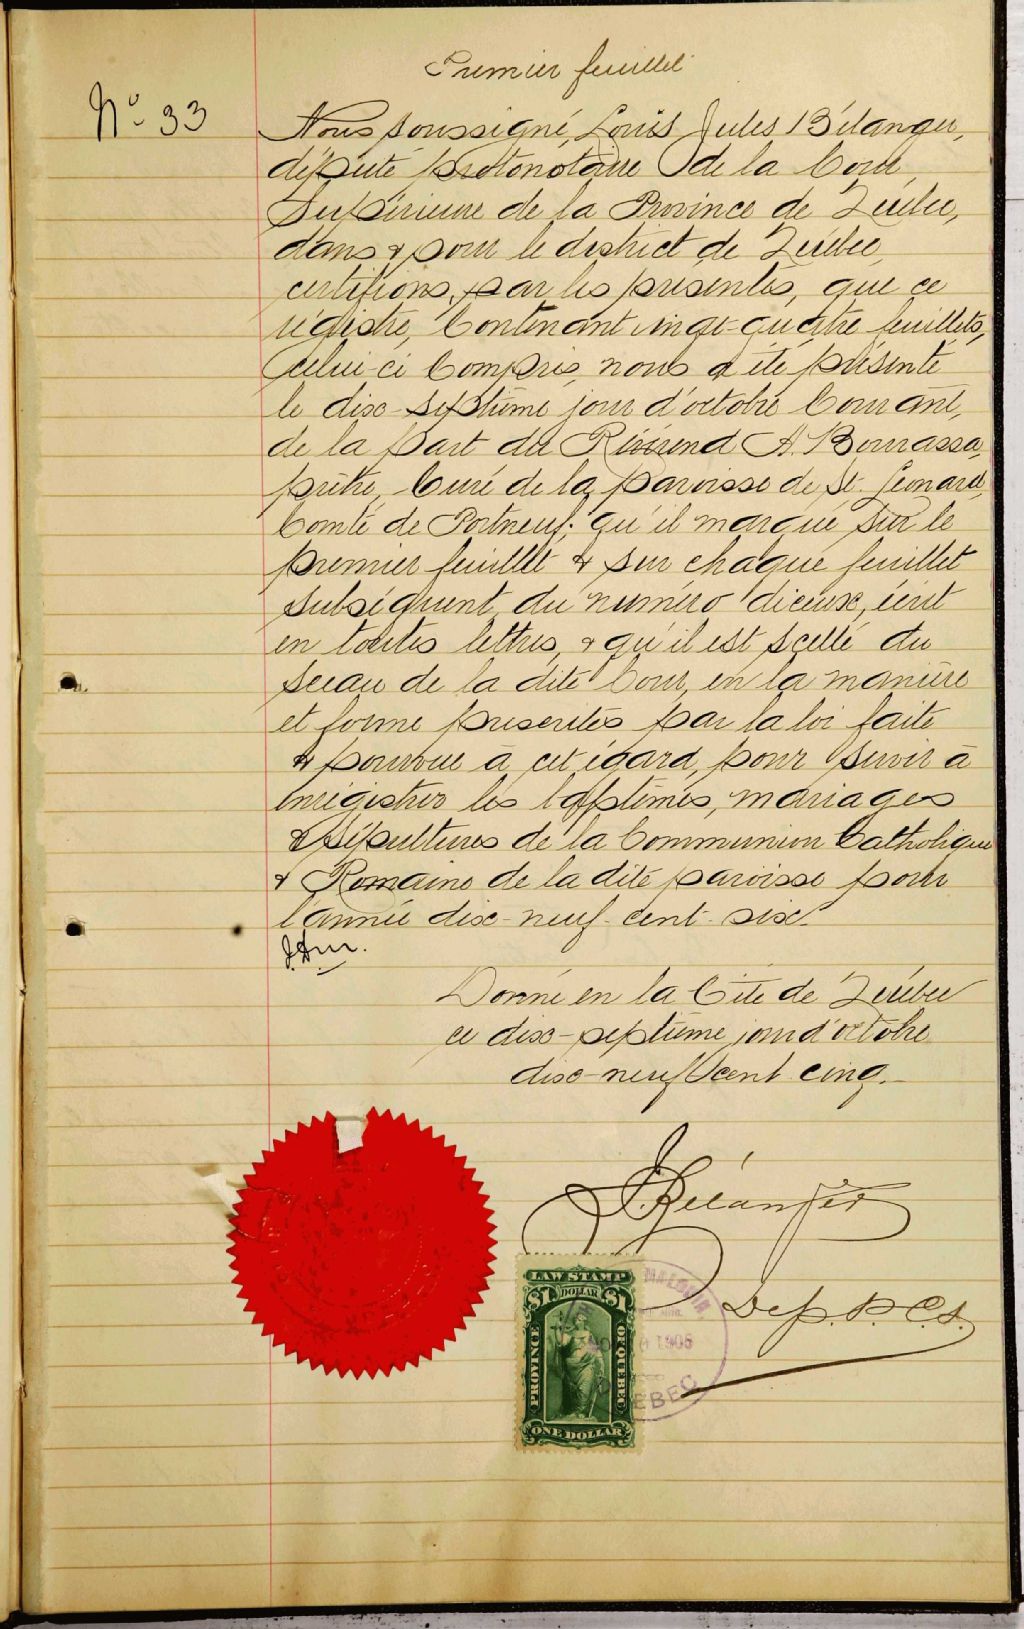 Premier feuillet
No 33
Nous soussigné, Louis Jules Bélanger,
député protonotaire de la Cour
Supérieure de la Province de Québec,
dans & pour le district de Québec,
certifions, par les présentes, que ce
régistre, Contenant vingt-quatre feuillets,
celui-ci Compris, nous a été présenté
le dix-septième jour d'octobre Courant,
de la part du Révérend A. Bourrassa,
prêtre, Curé de la paroisse de St. Léonard,
Comté de Portneuf; qu'il marqué sur le
premier feuillet & sur chaque feuillet
subséquent, du numéro d'iceux, écrit
en toutes lettres, & qu'il est scellé du
sceau de la dite Cour, en la manière
et forme prescrites par la loi faite
& pourvue à cet égard, pour servir à
enrégistrer les baptêmes, mariages
& sépultures de la Communion Catholique
& Romaine de la dite paroisse pour
l'année dix-neuf-cent-six.
Donné en la Cité de Québec
ce dix-septième jour d'octobre
dix-neuf cent cinq.
Bélanger
Dep. P. C. S.
LAW STAMP
$1 DOLLAR $1
PROVINCE OF QUEBEC
ONE DOLLAR
MALOUIN
1905